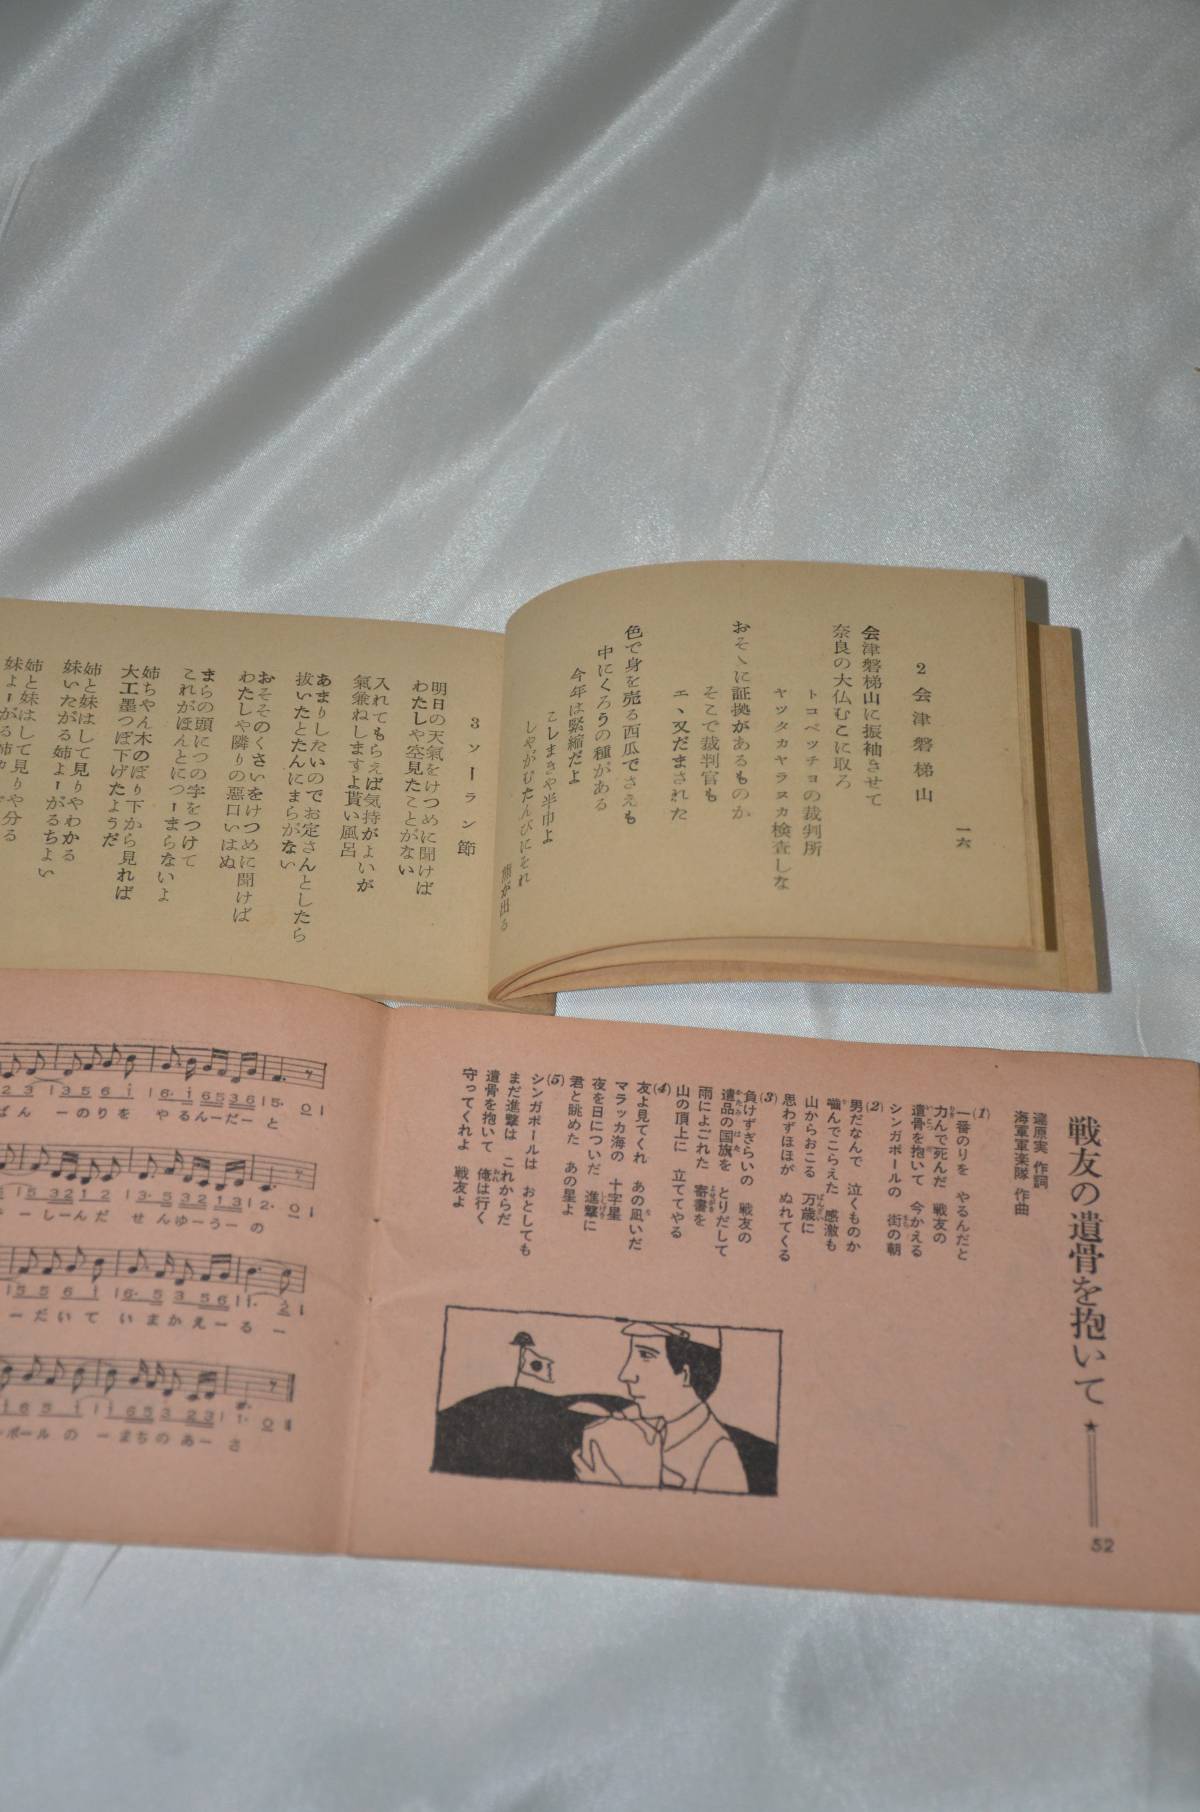 2 会津磐梯山
一六
会津磐梯山に振袖させて
奈良の大仏むこに取ろ
トコベッチョの裁判所
ヤッタカヤラヌカ検査しな
おそゝに証拠があるものか
そこで裁判官も
エヽ又だまされた
色で身を売る西瓜でさえも
中にくろうの種がある
今年は緊縮だよ
こしまきや半巾よ
しやがむたんびにそれ
熊が出る
3 ソーラン節
明日の天氣をけつめに聞けば
わたしや空見たことがない
入れてもらえば気持がよいが
氣兼ねしますよ貰い風呂
あまりしたいのでお定さんとしたら
抜いたとたんにまらがない
おそそのくさいをけつめに聞けば
わたしや隣りの悪口いはぬ
まらの頭につの字をつけて
これがほんとにつーまらないよ
姉ちやん木のぼり下から見れば
大工墨つぼ下げたようだ
姉と妹はして見りやわかる
妹いたがる姉よーがるちよい
姉と妹はして見りや分る
妹よーがる姉
戦友の遺骨を抱いて
52
逵原実 作詞
海軍軍楽隊 作曲
(1)
一番のりを やるんだと
力んで死んだ 戦友の
遺骨を抱いて 今かえる
シンガポールの 街の朝
(2)
男だなんで 泣くものか
嚙んでこらえた 感激も
山からおこる 万歳に
思わずほほが ぬれてくる
(3)
負けずぎらいの 戦友の
遺品の国旗を とりだして
雨によごれた 寄書を
山の頂上に 立ててやる
(4)
友よ見てくれ あの凪いだ
マラッカ海の 十字星
夜を日についだ 進撃に
君と眺めた あの星よ
(5)
シンガポールは おとしても
まだ進撃は これからだ
遺骨を抱いて 俺は行く
守ってくれよ 戦友よ
ばんーのりを やるんーだーと
しーんだ せんゆーうーの
ーだいて いまかえーるー
ポールの ーまちのあーさ